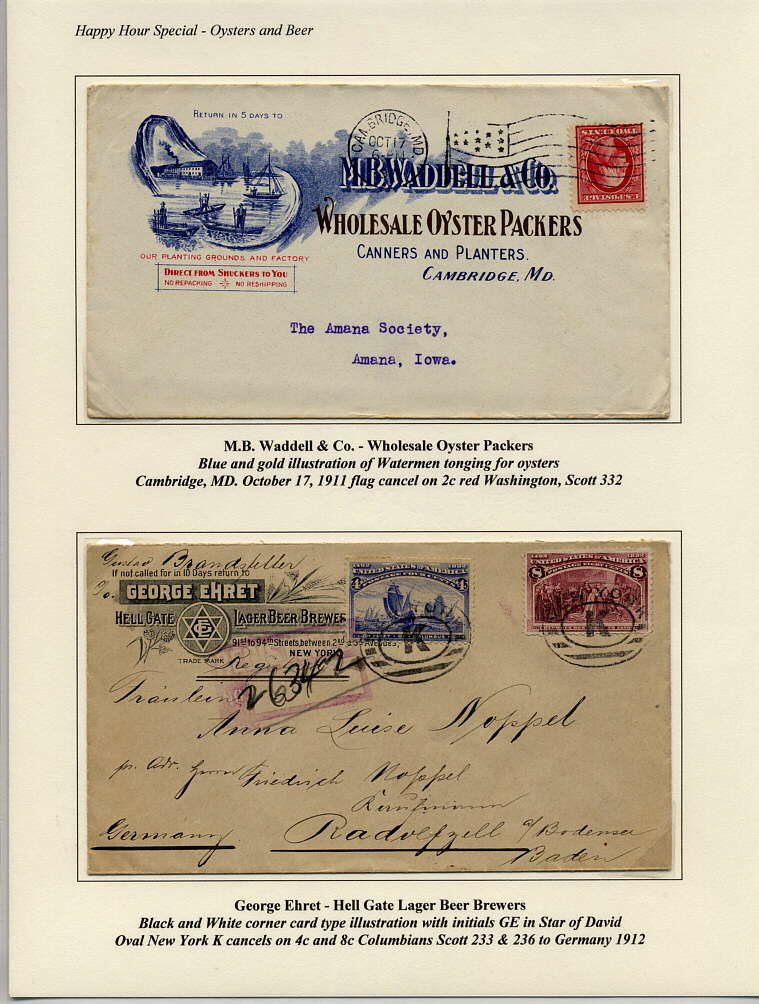 Happy Hour Special - Oysters and Beer
RETURN IN 5 DAYS TO
CAMBRIDGE, MD.
OCT 17
M.B. WADDELL & CO.
WHOLESALE OYSTER PACKERS
CANNERS AND PLANTERS.
CAMBRIDGE, MD.
OUR PLANTING GROUNDS AND FACTORY
DIRECT FROM SHUCKERS TO YOU
NO REPACKING NO RESHIPPING
U.S. POSTAGE
TWO CENTS
The Amana Society,
Amana, Iowa.
M.B. Waddell & Co. - Wholesale Oyster Packers
Blue and gold illustration of Watermen tonging for oysters
Cambridge, MD. October 17, 1911 flag cancel on 2c red Washington, Scott 332
Gustav Brandstetter
If not called for in 10 Days return to
c/o. GEORGE EHRET
HELL GATE LAGER BEER BREWER
GE
91st to 94th Streets, between 2nd & 3rd Avenues,
NEW YORK
TRADE MARK
26342
1492 1892
UNITED STATES OF AMERICA
4 4
K
1492 1892
UNITED STATES OF AMERICA
8 8
NEW YORK
K
Fräulein
Anna Luise Noppel
pr. Adr. Herrn Friedrich Noppel
Kaufmann
Germany Radolfzell a/Bodensee
Baden
George Ehret - Hell Gate Lager Beer Brewers
Black and White corner card type illustration with initials GE in Star of David
Oval New York K cancels on 4c and 8c Columbians Scott 233 & 236 to Germany 1912